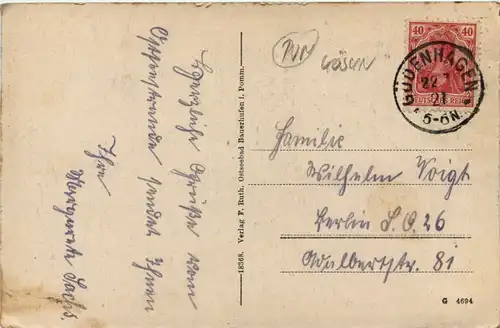 Herzliche Grüße vom
Ostseestrande sendet Ihnen
Ihre
Margarete Sachs.
18368. Verlag F. Ruth, Ostseebad Bauerhufen i. Pomm.
40 40
DEUTSCHES REICH
GÜDENHAGEN
22.7
21
5-6N.
Familie
Wilhelm Voigt
Berlin S.O. 26
Adalbertstr. 81
G 4694